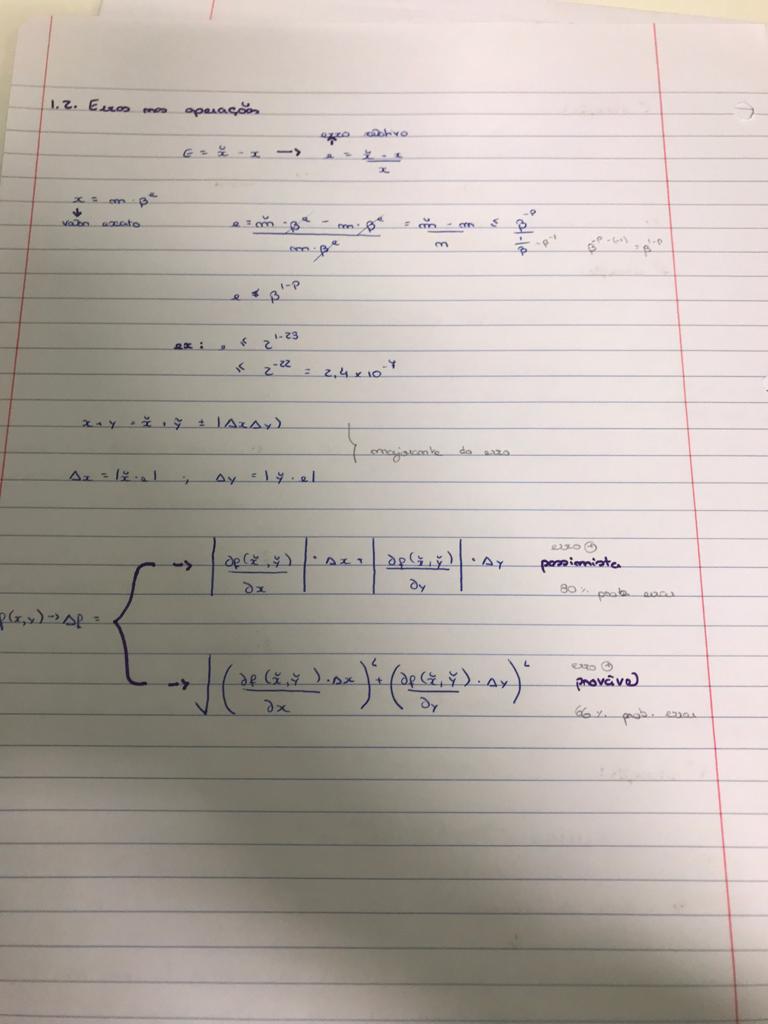 1.2. Erros nas operações
erro relativo
ϵ = x̌ - x → e = (x̌ - x)/x
x = m · β^e
valor exato
e = (m̌ · β^e - m · β^e)/(m · β^e) = (m̌ - m)/m ≤ β^-p/(1/β) → β^-1 β^(-p-(-1)) = β^(1-p)
e ≤ β^(1-p)
ex: e ≤ 2^(1-23)
≤ 2^-22 = 2,4 × 10^-7
x + y = x̌ + y̌ ± |Δx Δy)
majorante do erro
Δx = |x̌ · e| ; Δy = |y̌ · e|
erro ⊕
→ |∂f(x̌, y̌)/∂x| · Δx + |∂f(x̌, y̌)/∂y| · Δy possimista
80% prob. errar
f(x,y) → Δf =
erro ⊕
→ √((∂f(x̌, y̌)/∂x · Δx)² + (∂f(x̌, y̌)/∂y · Δy)²) provável
66% prob. errar